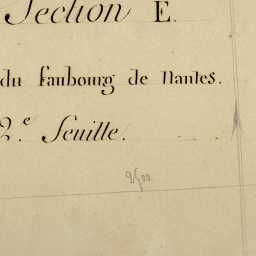 Section E.
du faubourg de Nantes.
2.e Feuille.